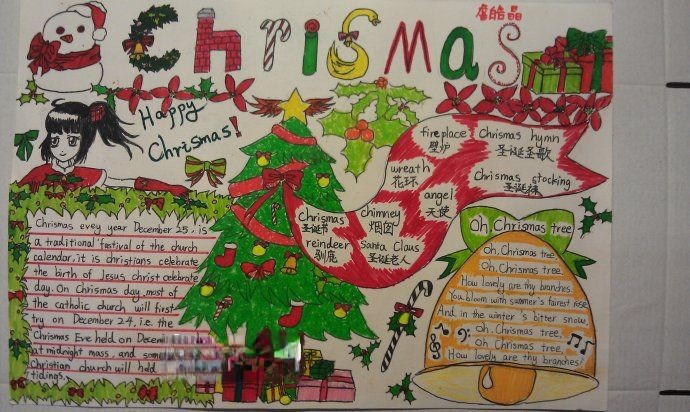 皓晶
ChriSMAS
Happy
Chrismas!
fireplace
壁炉
Chrismas hymn
圣诞圣歌
wreath
花环
Chrismas stocking
圣诞袜
angel
天使
Chrismas
圣诞节
chimney
烟囱
reindeer
驯鹿
Santa Claus
圣诞老人
Chrismas evey year December 25. is
a traditional festival of the church
calendar. it is christians celebrate
the birth of Jesus christ celebrate
day. On Chrismas day. most of
the catholic church will first
try on December 24, i.e. the
Chrismas Eve held on Decem
at midnight mass, and som
Christian church will held
tidings.
Oh, Chrismas tree
Oh, Chrismas tree
Oh, Chrismas tree,
How lovely are thy branches.
You bloom with summer's fairest rise
And in the winter's bitter snow,
Oh, Chrismas tree,
Oh Chrismas tree,
How lovely are thy branches!